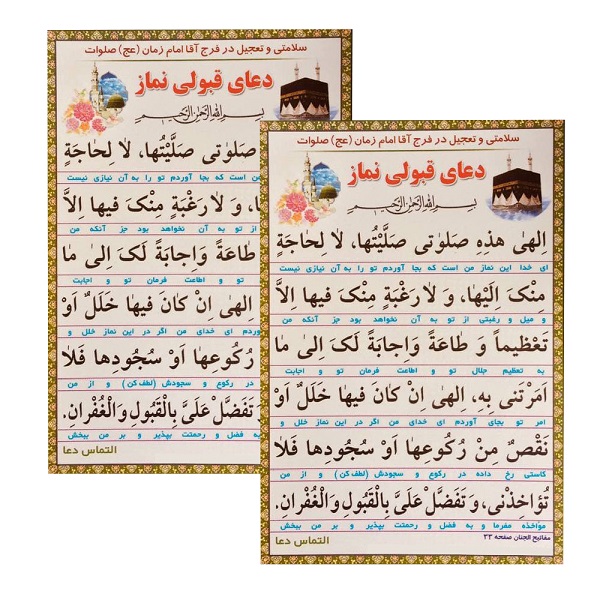 سلامتی و تعجیل در فرج آقا امام زمان (عج) صلوات
دعای قبولی نماز
بسم الله الرحمن الرحیم
صَلوٰتی صَلَّیْتُها، لاٰ لِحاجَةٍ
من است که بجا آوردم تو را به آن نیازی نیست
وَ لاٰ رَغْبَةٍ مِنْکَ فیها اِلاَّ
از تو به آن نخواهد بود جز آنکه من
طاعَةً وَ اِجابَةً لَکَ اِلی مٰا
تو و اطاعت فرمان تو و اجابت
اِلهی اِنْ کانَ فیهٰا خَلَلٌ اَوْ
آوردم ای خدای من اگر در این نماز خلل و
رُکُوعِهٰا اَوْ سُجُودِها فَلاٰ
در رکوع و سجودش (لطف کن) و از من
تَفَضَّلْ عَلَیَّ بِالْقَبُولِ وَ الْغُفْرانِ.
به فضل و رحمتت بپذیر و بر من ببخش
التماس دعا
سلامتی و تعجیل در فرج آقا امام زمان (عج) صلوات
دعای قبولی نماز
بسم الله الرحمن الرحیم
اِلهیٰ هذِهِ صَلوٰتی صَلَّیْتُها، لاٰ لِحاجَةٍ
ای خدا این نماز من است که بجا آوردم تو را به آن نیازی نیست
مِنْکَ اِلَیْهٰا، وَ لاٰ رَغْبَةٍ مِنْکَ فیها اِلاَّ
و میل و رغبتی از تو به آن نخواهد بود جز آنکه من
تَعْظیماً وَ طاعَةً وَ اِجابَةً لَکَ اِلی مٰا
به تعظیم جلال تو و اطاعت فرمان تو و اجابت
اَمَرْتَنی بِهِ، اِلهی اِنْ کانَ فیهٰا خَلَلٌ اَوْ
امر تو بجای آوردم ای خدای من اگر در این نماز خلل و
نَقْصٌ مِنْ رُکُوعِهٰا اَوْ سُجُودِها فَلاٰ
کاستی رخ داده در رکوع و سجودش (لطف کن) و از من
تُؤاخِذْنی، وَ تَفَضَّلْ عَلَیَّ بِالْقَبُولِ وَ الْغُفْرانِ.
مؤاخذه مفرما و به فضل و رحمتت بپذیر و بر من ببخش
مفاتیح الجنان صفحه ۲۳
التماس دعا